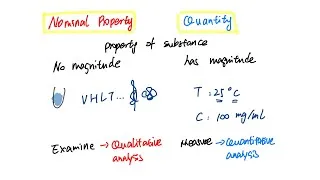 Nominal Property Quantity
property of substance
No magnitude has magnitude
VHLT... T : 25 °C
C : 100 mg/mL
Examine → Qualitative analysis Measure → Quantitative analysis